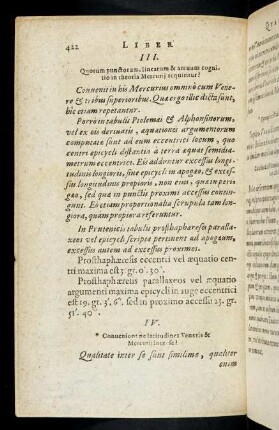 422 LIBER
III.
Quorum punctorum, linearum & arcuum cogni-
tio in theoria Mercurij requiritur?
Convenit in his Mercurius omninò cum Vene-
re & tribus superioribus. Quæ ergo illic dicta sunt,
hîc etiam repetantur.
Porrò in tabulis Ptolemæi & Alphonsinorum,
vel ex eis derivatis, æquationes argumentorum
computatæ sunt ad eum eccentrici locum, quo
centri epicycli distantia à terra æquat semidia-
metrum eccentrici. Eis adduntur excessus longi-
tudinis longioris, sine epicycli in apogeo, & exces-
sus longitudinis propioris, non eius, quæ in peri-
geo, sed quæ in punctis proximi accessus contin-
gunt. Et etiam proportionalia scrupula tam lon-
giora, quam propiora referuntur.
In Prutenicis tabulis prosthaphæresis parallaxeos
vel epicycli scriptæ pertinent ad apogæum,
excessus autem ad excessus proximos.
Prosthaphæresis eccentri vel æquatio cen-
tri maxima est 3 gr. 0'. 30''.
Prosthaphæresis parallaxeos vel æquatio
argumenti maxima epicycli in auge eccentrici
est 19. gr. 3'. 6''. sed in proximo accessu 23. gr.
51'. 40''.
IV.
* Conveniunt ne latitudines Veneris &
Mercurij inter se?
Qualitate inter se sunt similimæ, qualiter
enim